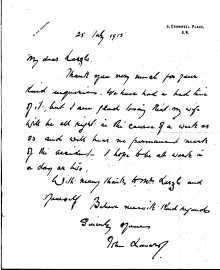 5, CROMWELL PLACE,
S.W.
25 July 1915
My dear
Thank you very much for your
kind enquiries. We have had a bad time
of it. but I am glad to say that my wife
will be all right in the course of a week or
so and will bear no permanent mark
of the accident. I hope to be at work in
a day or two.
With many thanks to Mrs and
yourself
Believe me with kind regards
Sincerely yours
John Lavery